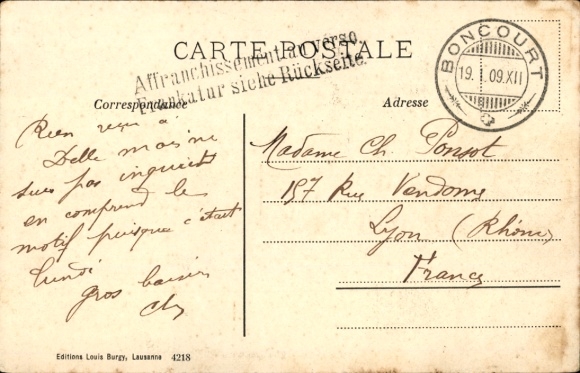 CARTE POSTALE
Affranchissement au verso.
Frankatur siehe Rückseite.
BONCOURT
19. I. 09. XII
Correspondance
Adresse
Rien reçu à
Delle mais ne
suis pas inquiète
en comprend le
motif puisque c'était
lundi
gros baisers
Madame Ch. Ponsot
157 Rue Vendome
Lyon (Rhône)
France
Editions Louis Burgy, Lausanne 4218